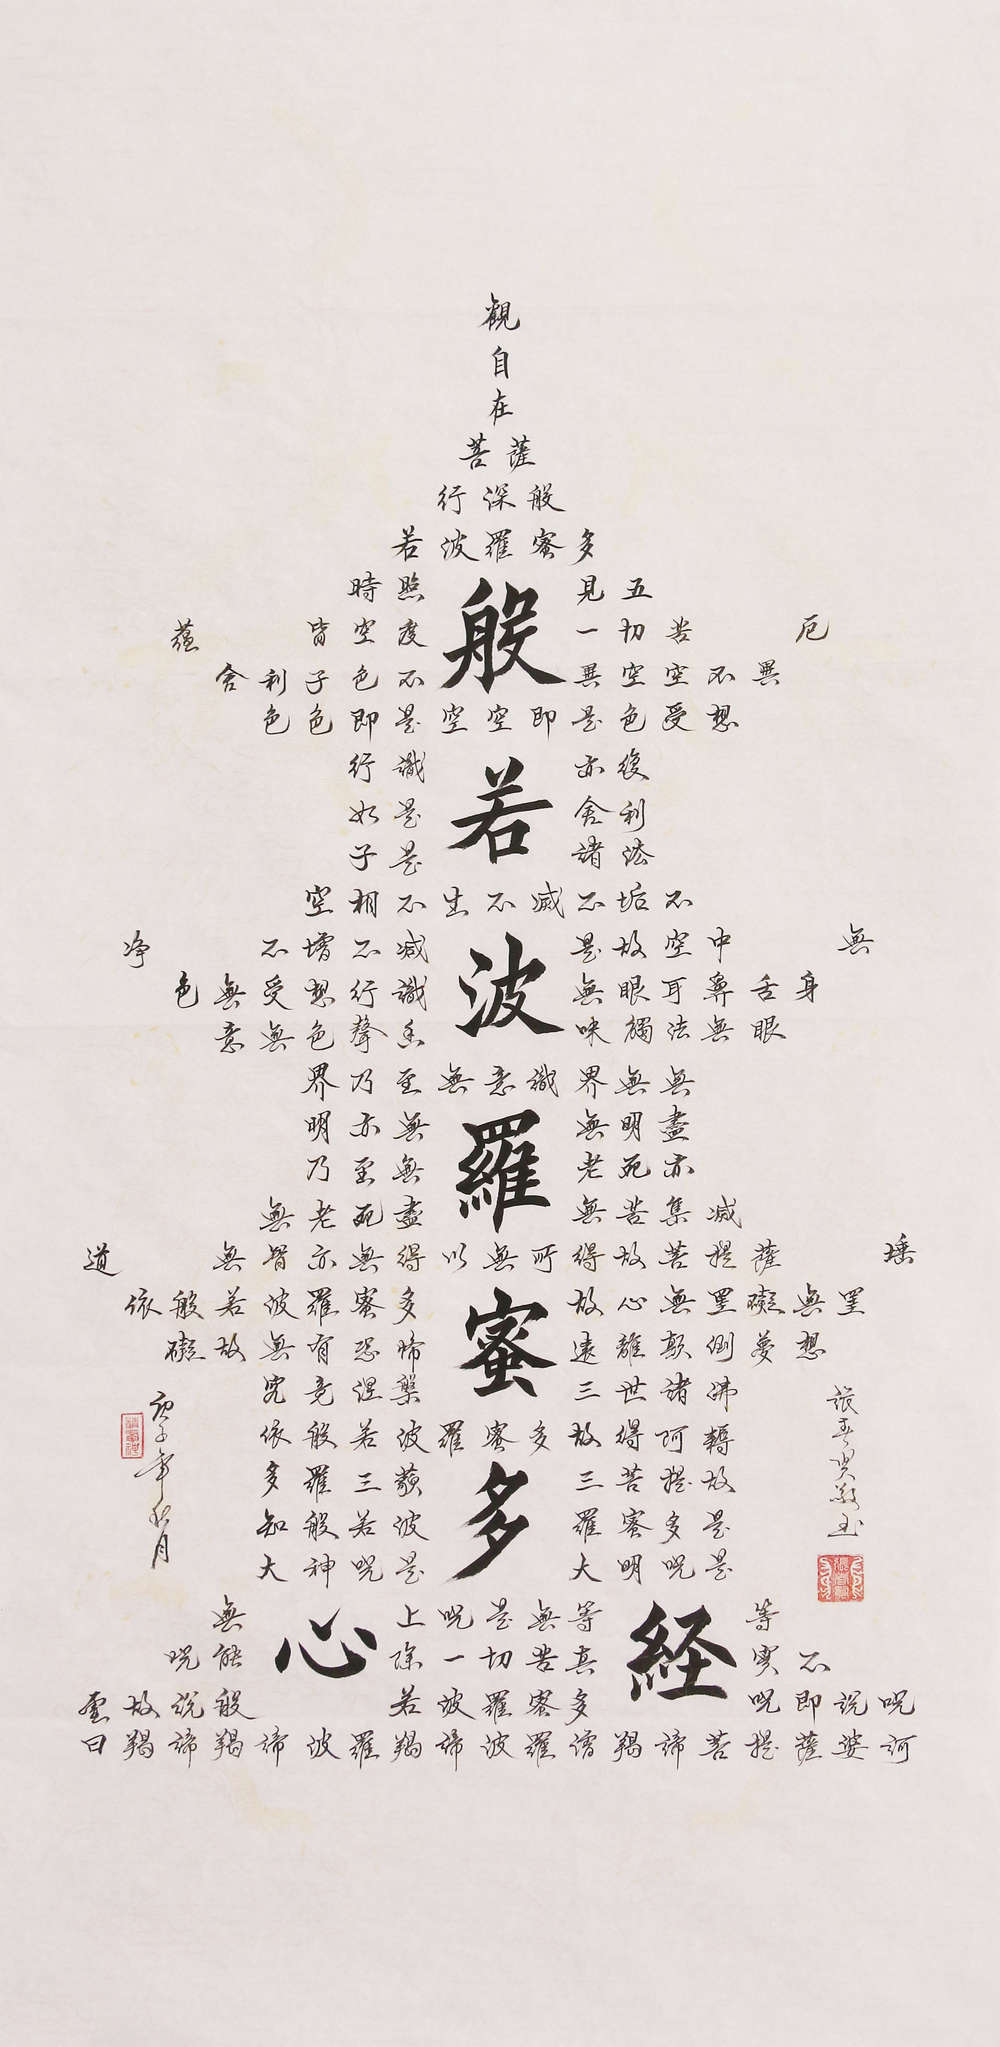 觀
自
在
菩薩
行深般
若波羅蜜多
時照見五
蘊皆空度一切苦厄
舍利子色不異空空不異
色色即是空空即是色受想
行識亦復
如是舍利
子是諸法
空相不生不滅不垢不
净不增不减是故空中無
色無受想行識無眼耳鼻舌身
意無色聲香味觸法無眼
界乃至無意識界無無
明亦無無明盡
乃至無老死亦
無老死盡無苦集减
道無智亦無得以無所得故菩提薩埵
依般若波羅蜜多故心無罣礙無罣
礙故無有恐怖遠離顛倒夢想
究竟涅槃三世諸沸
依般若波羅蜜多故得阿耨
多羅三藐三菩提故
知般若波羅蜜多是
大神呪是大明呪是
無上呪是無等等
呪能除一切苦真實不
虛故說般若波羅蜜多呪即說呪
曰羯諦羯諦波羅羯諦波羅僧羯諦菩提薩婆訶
般若波羅蜜多
心經
庚子年秋月